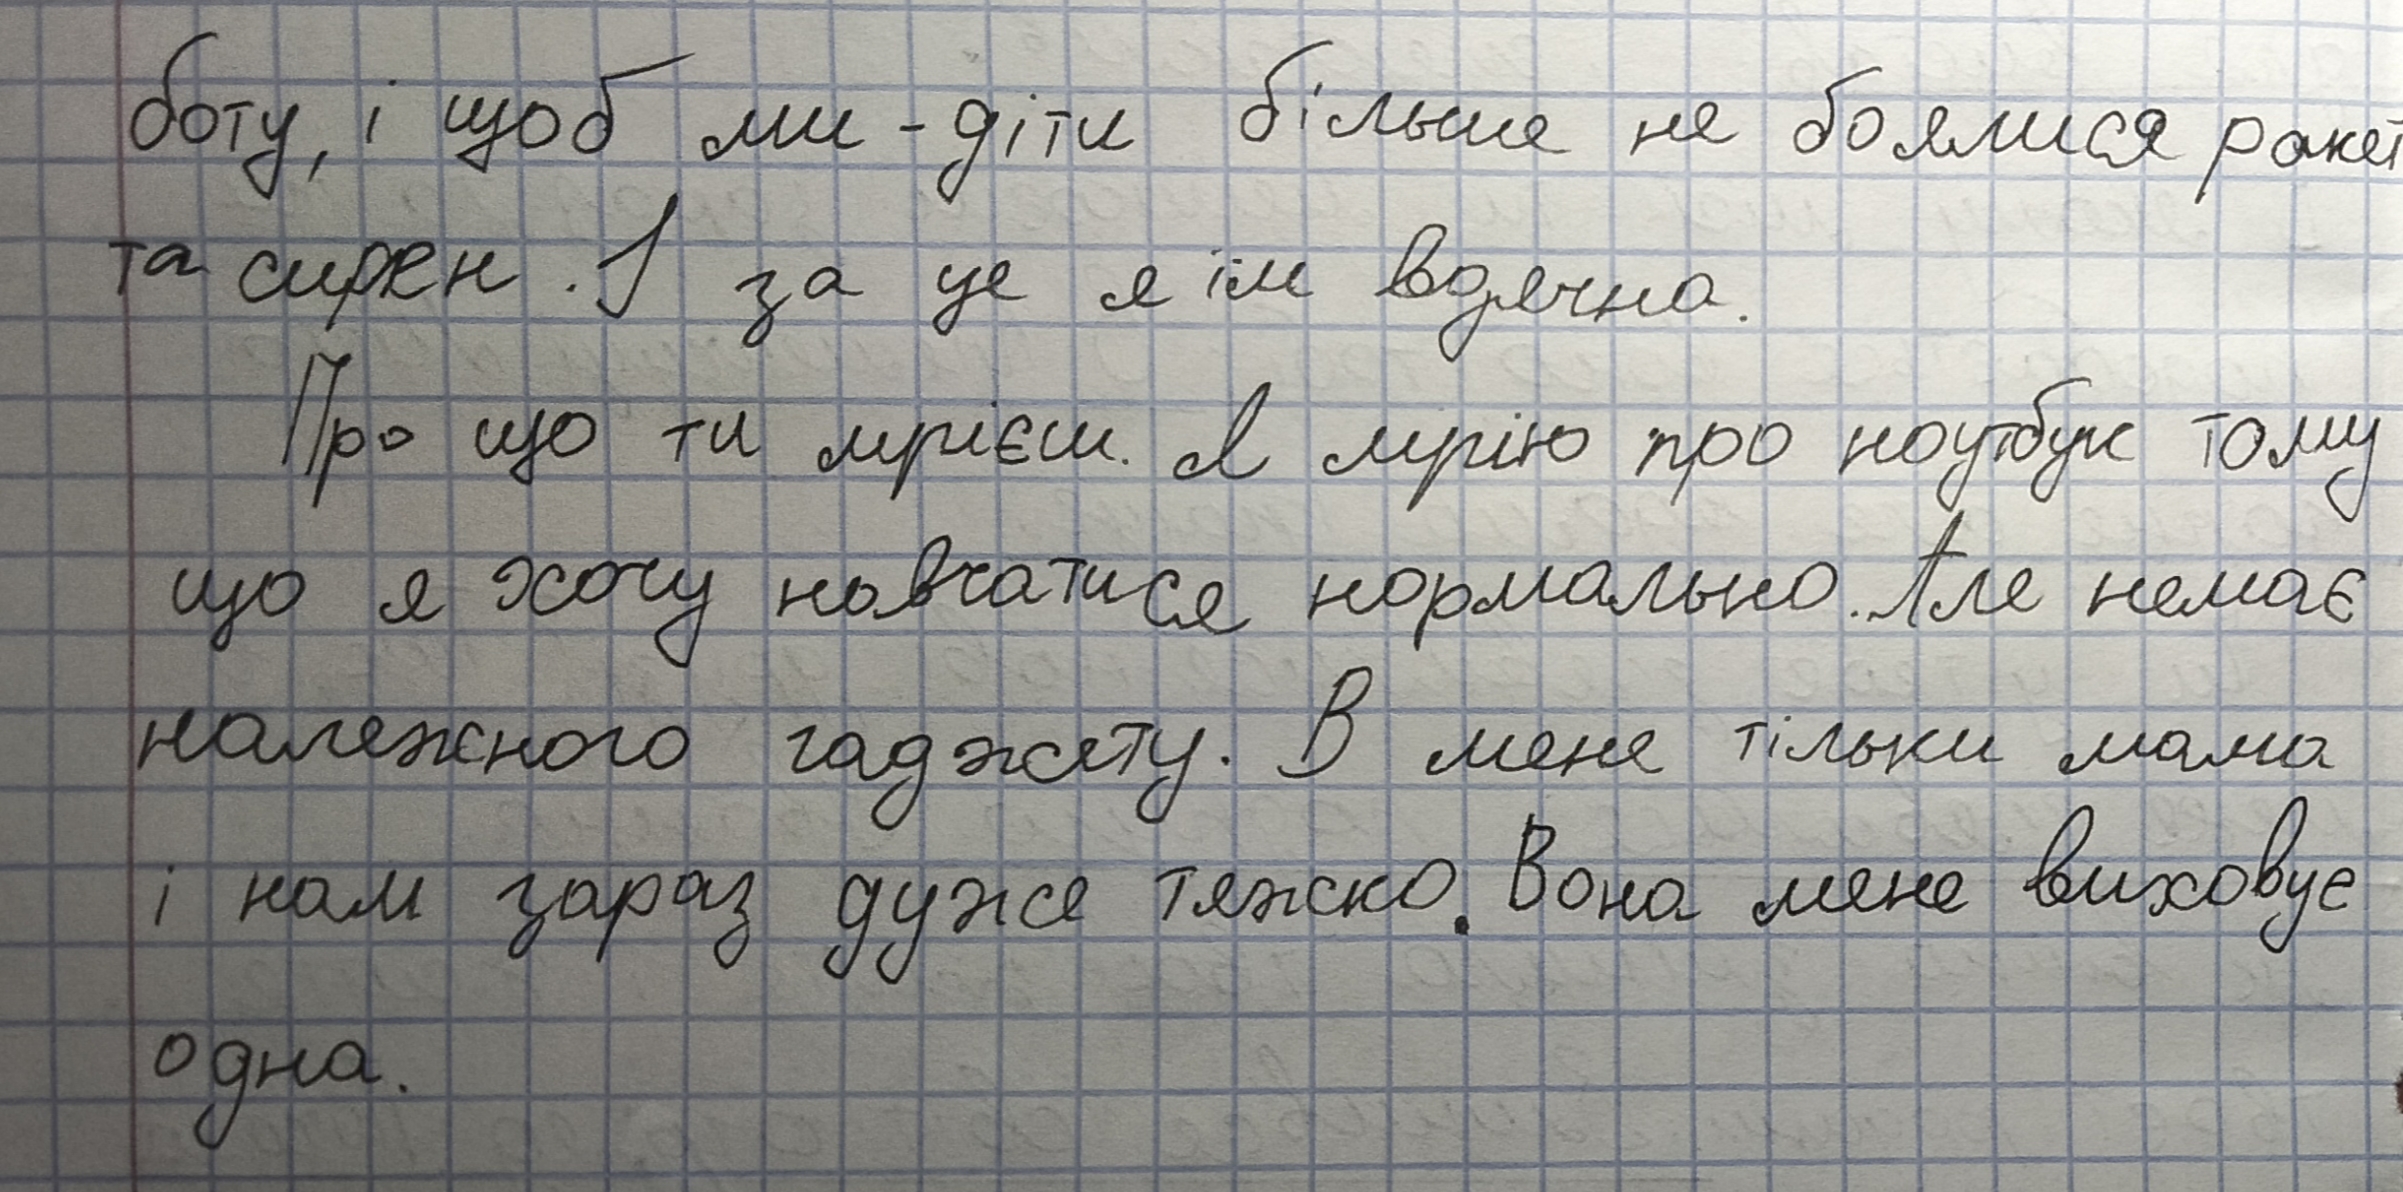 боту, і щоб ми - діти більше не боялися ракет
та сирен. І за це я їм вдячна.
Про що ти мрієш. Я мрію про ноутбук тому
що я хочу навчатися нормально. Але немає
належного гаджету. В мене тільки мама
і нам зараз дуже тяжко. Вона мене виховує
одна.